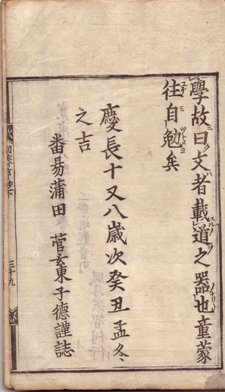 學故曰文者載道之器也童蒙
往自勉矣
慶長十又八歲次癸丑孟冬
之吉
番昜蒲田 菅玄東子德謹誌
三十九